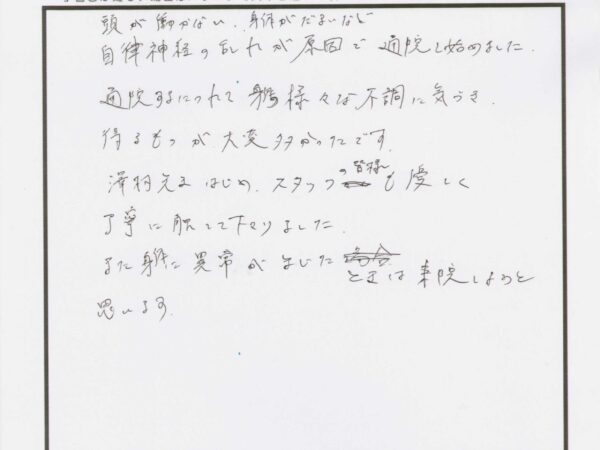 頭が働かない、身体がだるいなど
自律神経の乱れが原因で通院し始めました.
通院するにつれて身体の様々な不調に気づき.
得るものが大変多かったです.
澤村先生はじめ、スタッフの皆様も優しく
丁寧に接して下さりました.
また身体に異常が生じたときは来院しようと
思います.